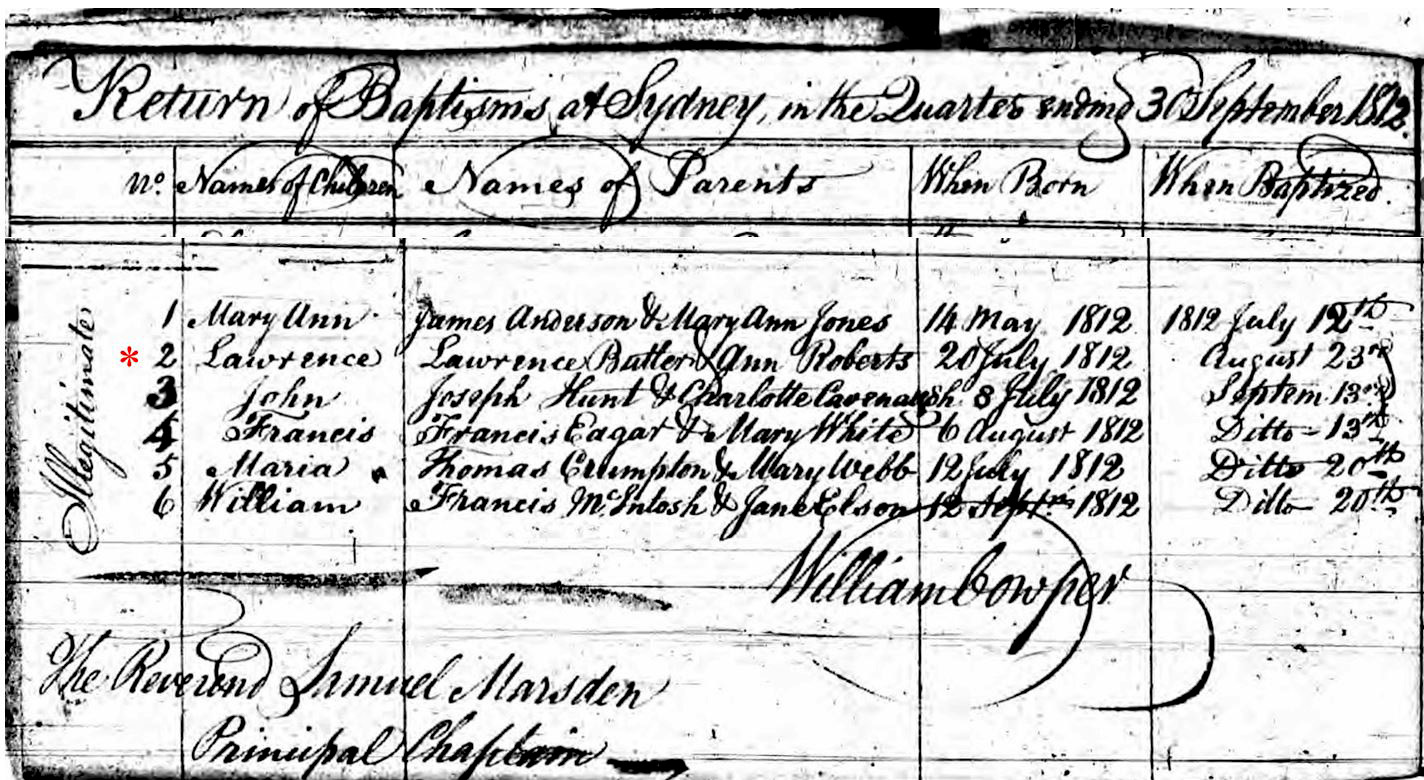 Return of Baptisms at Sydney, in the Quarter ending 30 September 1812.
No. Names of Children Names of Parents When Born When Baptized.
Illegitimate
1 Mary Ann James Anderson & Mary Ann Jones 14 May 1812 1812 July 12th
* 2 Lawrence Lawrence Butler & Ann Roberts 20 July 1812 August 23rd
3 John Joseph Hunt & Charlotte Cavenaugh 8 July 1812 Septem 13th
4 Francis Francis Eagar & Mary White 6 August 1812 Ditto - 13th
5 Maria Thomas Crumpton & Mary Webb 12 July 1812 Ditto 20th
6 William Francis McIntosh & Jane Elson 12 Septr 1812 Ditto 20th
William Cowper
The Reverend Samuel Marsden
Principal Chaplain